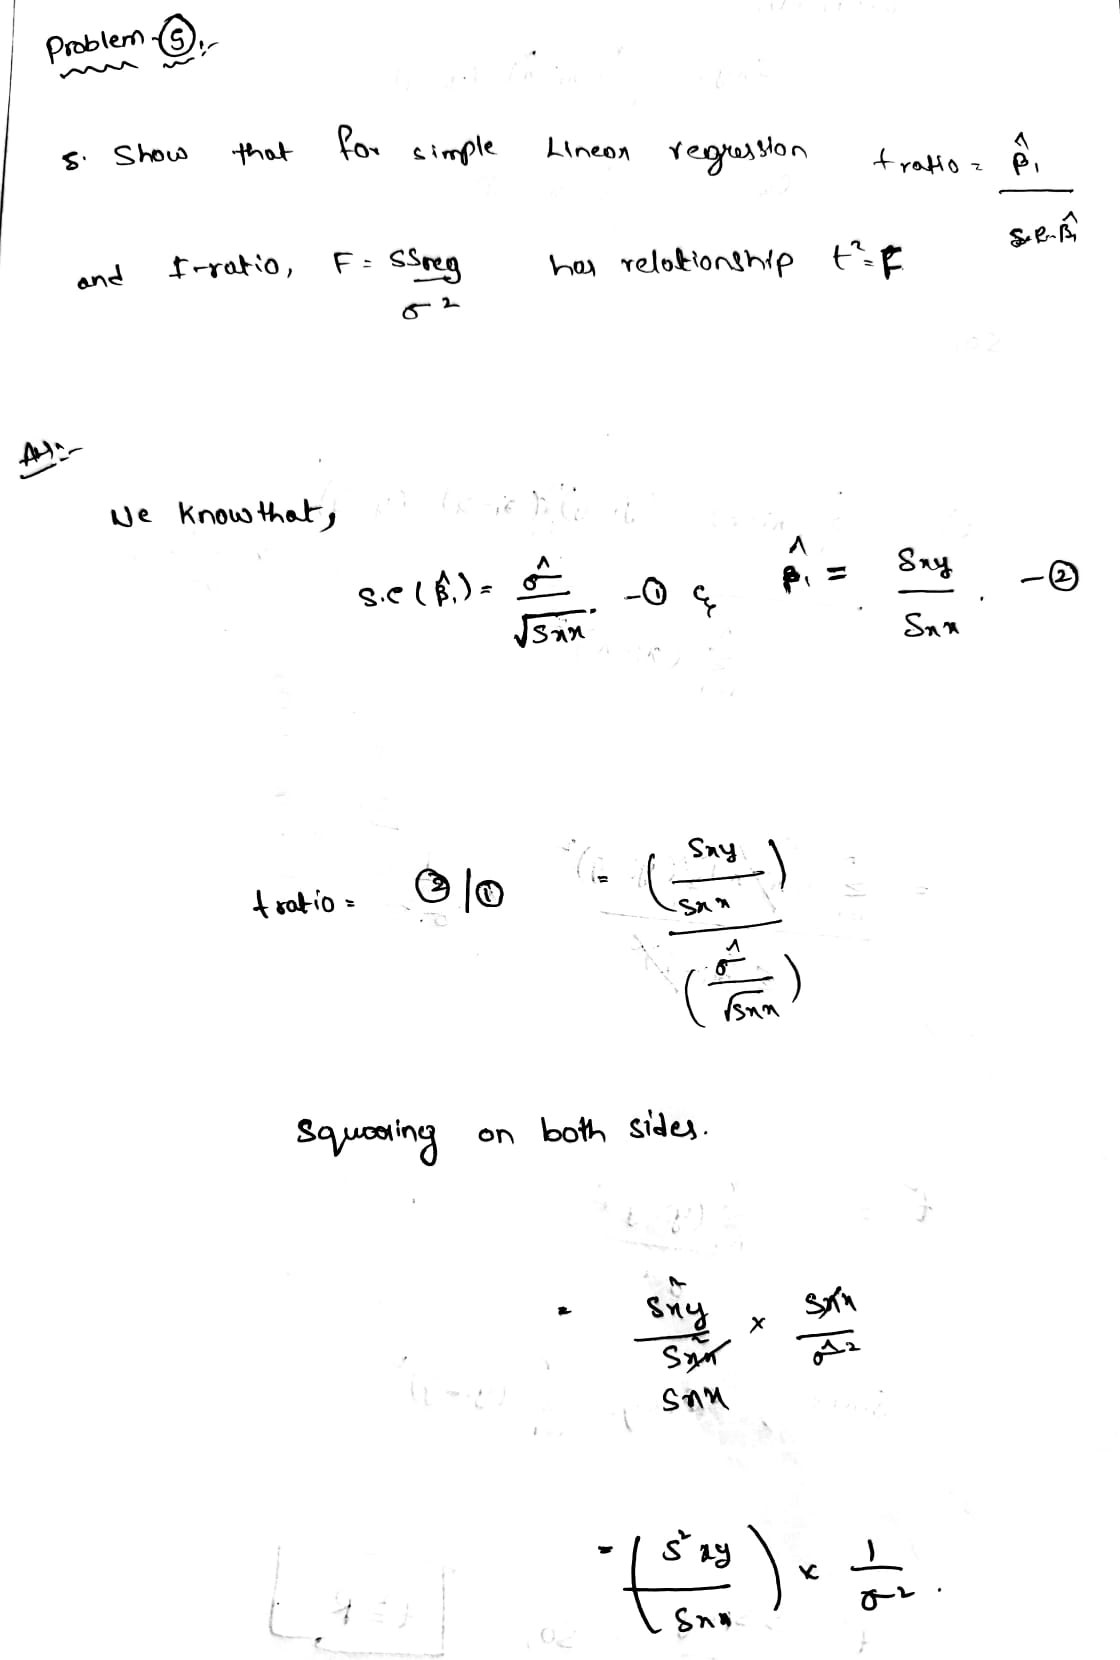 Problem-⑤:-
5. Show that for simple Linear regression t ratio = β̂₁ / S.E. β̂₁
and F-ratio, F = SSreg / σ² has relationship t² = F
Ans:-
We know that,
s.e (β̂₁) = σ̂ / √Sxx -① & β̂₁ = Sxy / Sxx . -②
t ratio = ②/① = (Sxy / Sxx) / (σ̂ / √Sxx)
Squaring on both sides.
= S²xy / S²xx × Sxx / σ̂²
Sxx
= (S²xy / Sxx) × 1 / σ² .